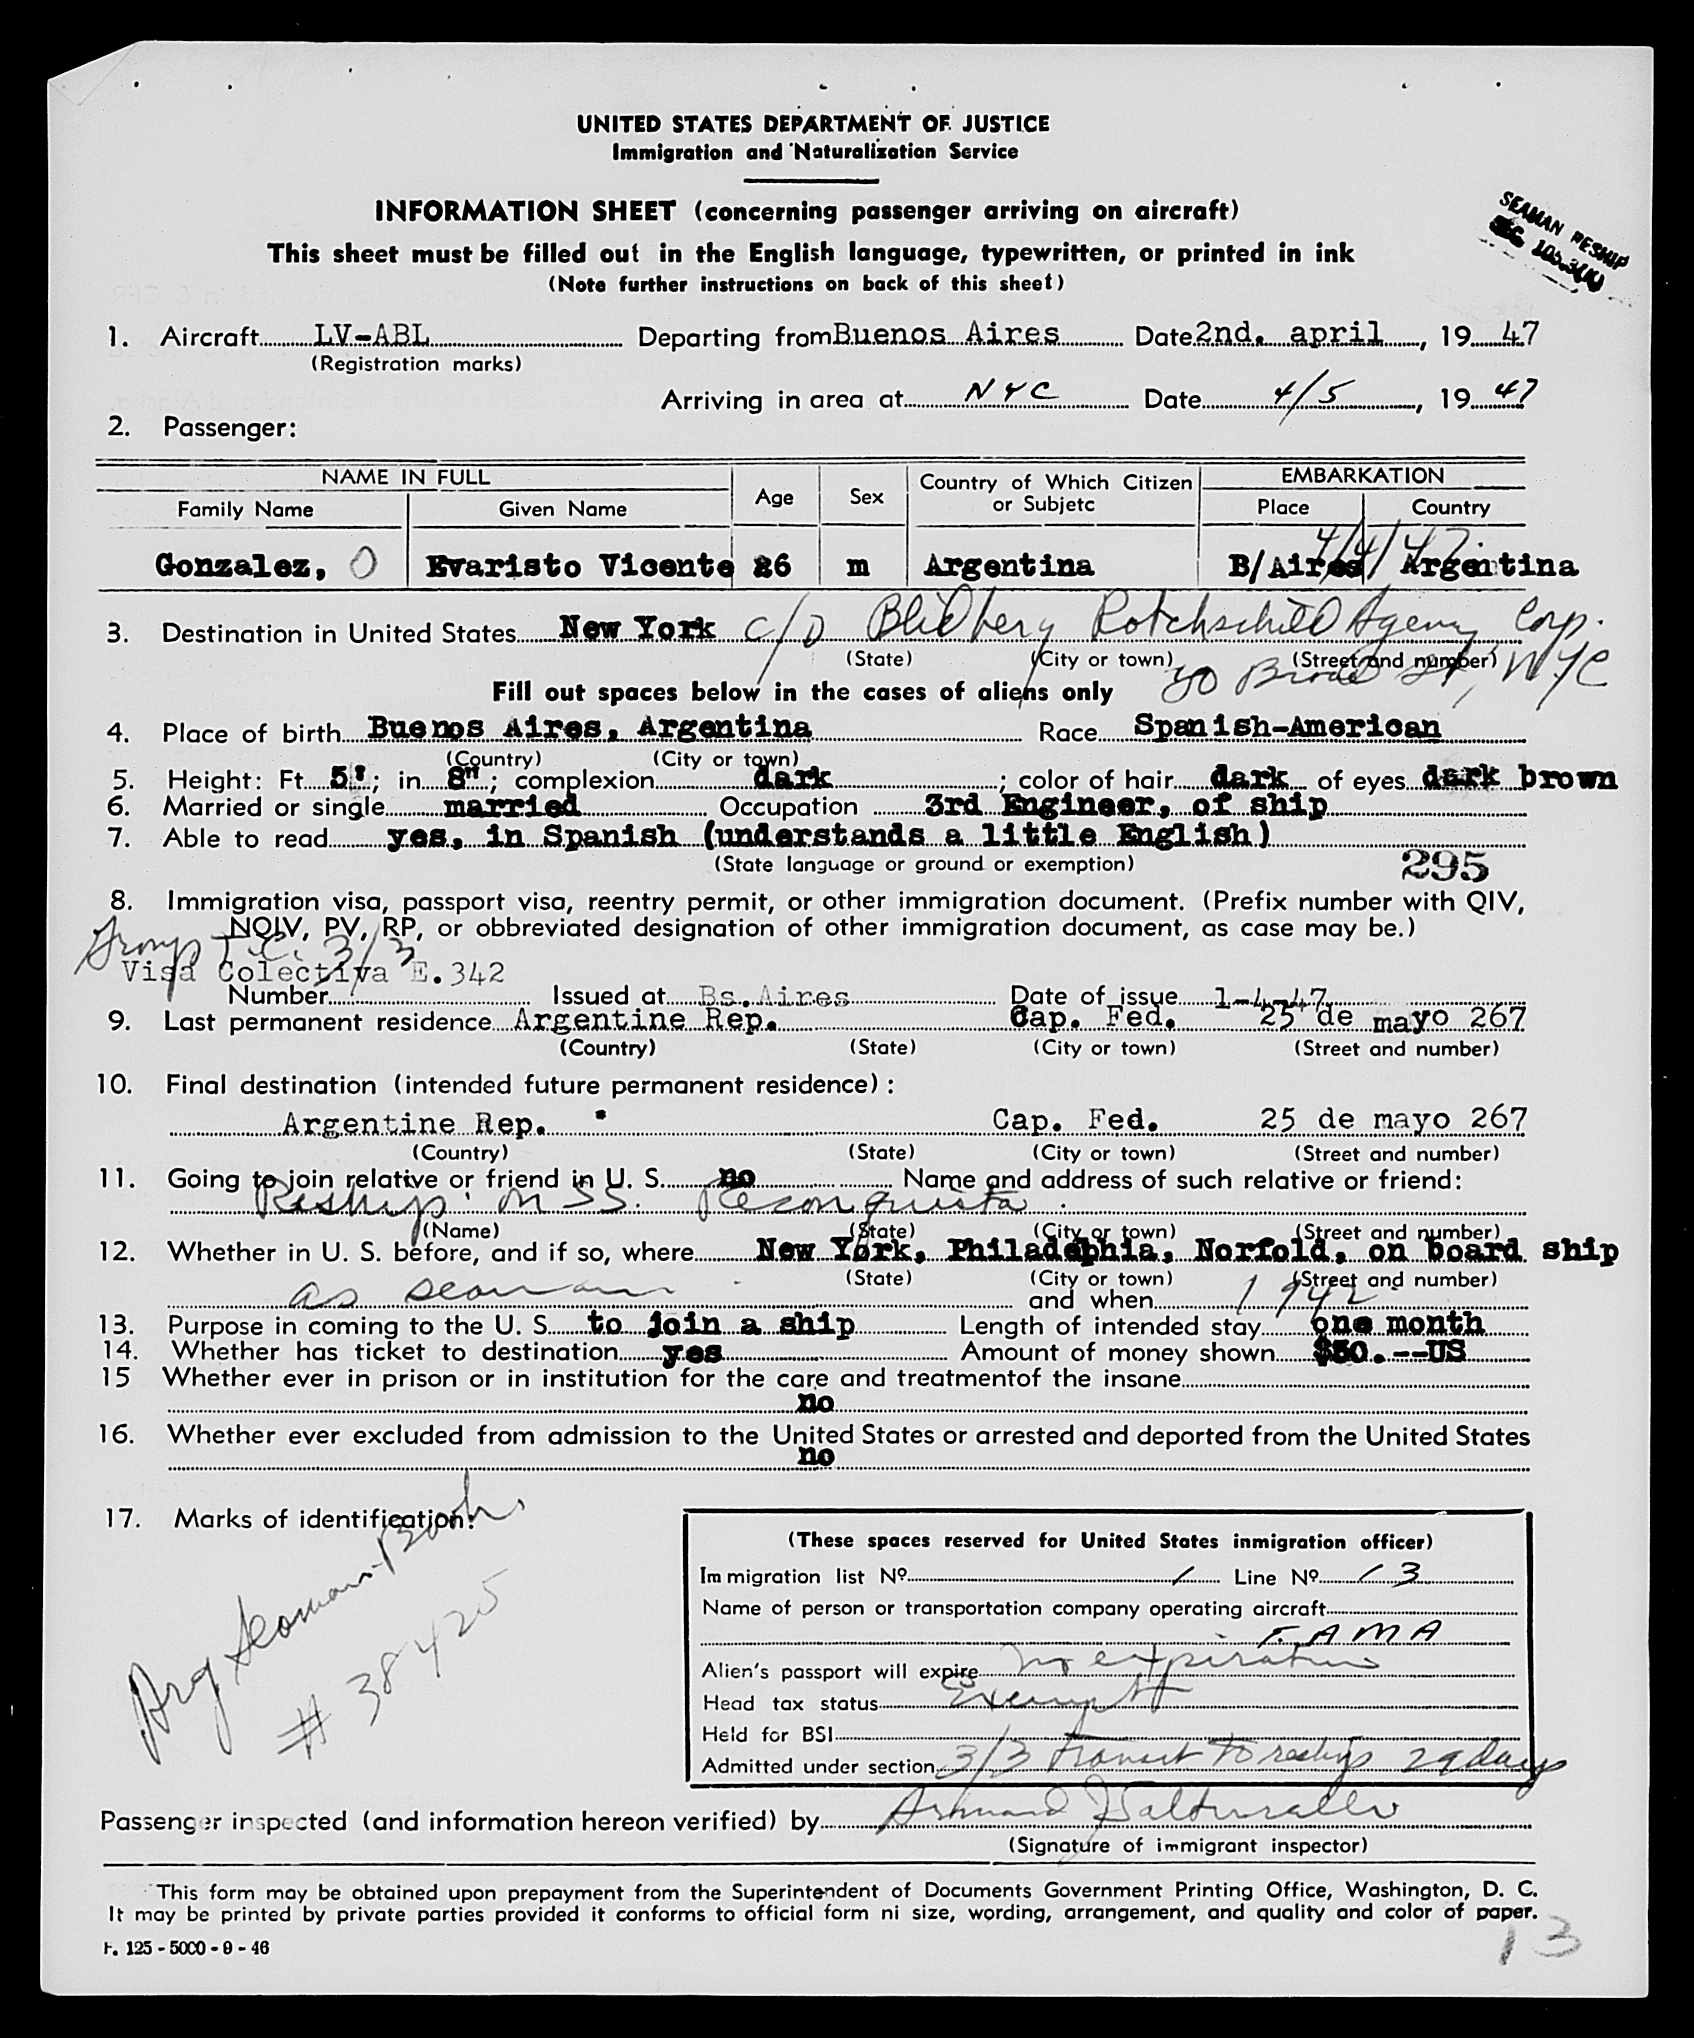 UNITED STATES DEPARTMENT OF JUSTICE
Immigration and Naturalization Service
INFORMATION SHEET (concerning passenger arriving on aircraft)
This sheet must be filled out in the English language, typewritten, or printed in ink
(Note further instructions on back of this sheet)
SEAMAN RESHIP
105.3(K)
1. Aircraft LV-ABL Departing from Buenos Aires Date 2nd. april, 19 47
(Registration marks)
Arriving in area at NYC Date 4/5, 19 47
2. Passenger:
NAME IN FULL Age Sex Country of Which Citizen or Subjetc EMBARKATION
Family Name Given Name Place Country
4/4/47
Gonzalez, O Evaristo Vicente 26 m Argentina B/Aires Argentina
3. Destination in United States New York c/o Blidberg Rotchschild Agency Corp.
(State) (City or town) (Street and number)
Fill out spaces below in the cases of aliens only 80 Broad St, NYC
4. Place of birth Buenos Aires, Argentina Race Spanish-American
(Country) (City or town)
5. Height: Ft. 5'; in. 8"; complexion dark; color of hair dark of eyes dark brown
6. Married or single married Occupation 3rd Engineer, of ship
7. Able to read yes, in Spanish (understands a little English)
(State language or ground or exemption)
295
8. Immigration visa, passport visa, reentry permit, or other immigration document. (Prefix number with QIV,
NQIV, PV, RP, or abbreviated designation of other immigration document, as case may be.)
Group T.C. 3/3
Visa Colectiva E.342
Number Issued at Bs.Aires Date of issue 1-4-47
9. Last permanent residence Argentine Rep. Cap. Fed. 25 de mayo 267
(Country) (State) (City or town) (Street and number)
10. Final destination (intended future permanent residence):
Argentine Rep. Cap. Fed. 25 de mayo 267
(Country) (State) (City or town) (Street and number)
11. Going to join relative or friend in U. S. no Name and address of such relative or friend:
Reship: on SS. Reconquista
(Name) (State) (City or town) (Street and number)
12. Whether in U. S. before, and if so, where New York, Philadephia, Norfold, on board ship
(State) (City or town) (Street and number)
as seaman and when 1942
13. Purpose in coming to the U. S. to join a ship Length of intended stay one month
14. Whether has ticket to destination yes Amount of money shown $50.--US
15 Whether ever in prison or in institution for the care and treatmentof the insane
no
16. Whether ever excluded from admission to the United States or arrested and deported from the United States
no
17. Marks of identification:
Arg Seaman Book
# 38425
(These spaces reserved for United States inmigration officer)
Immigration list Nº 1 Line Nº 13
Name of person or transportation company operating aircraft
F.A.M.A
Alien's passport will expire no expiration
Head tax status Exempt
Held for BSI
Admitted under section 3/3 transit to reship 29 days
Passenger inspected (and information hereon verified) by Armand J
(Signature of immigrant inspector)
This form may be obtained upon prepayment from the Superintendent of Documents Government Printing Office, Washington, D. C.
It may be printed by private parties provided it conforms to official form ni size, wording, arrangement, and quality and color of paper.
F. 125 - 5000 - 9 - 46
13